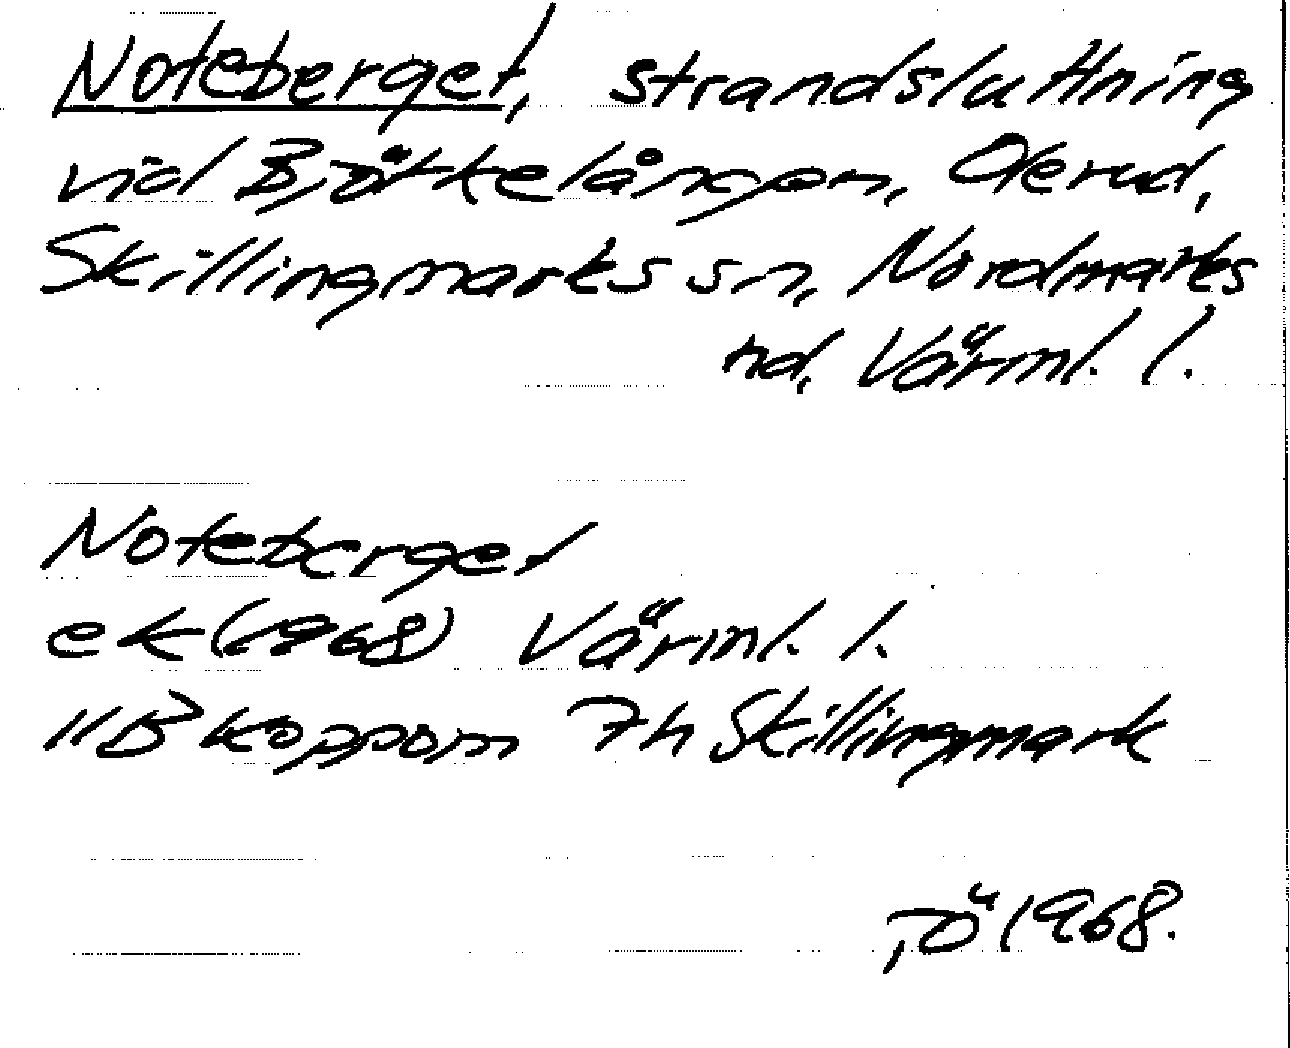 Noteberget, strandsluttning
vid Bjöttelången, Ålerud,
Skillingmarks sn, Nordmarks
hd, Värml. l.
Noteberget
ek (1968) Värml. l.
11B Koppom 7h Skillingmark
TÖ 1968.